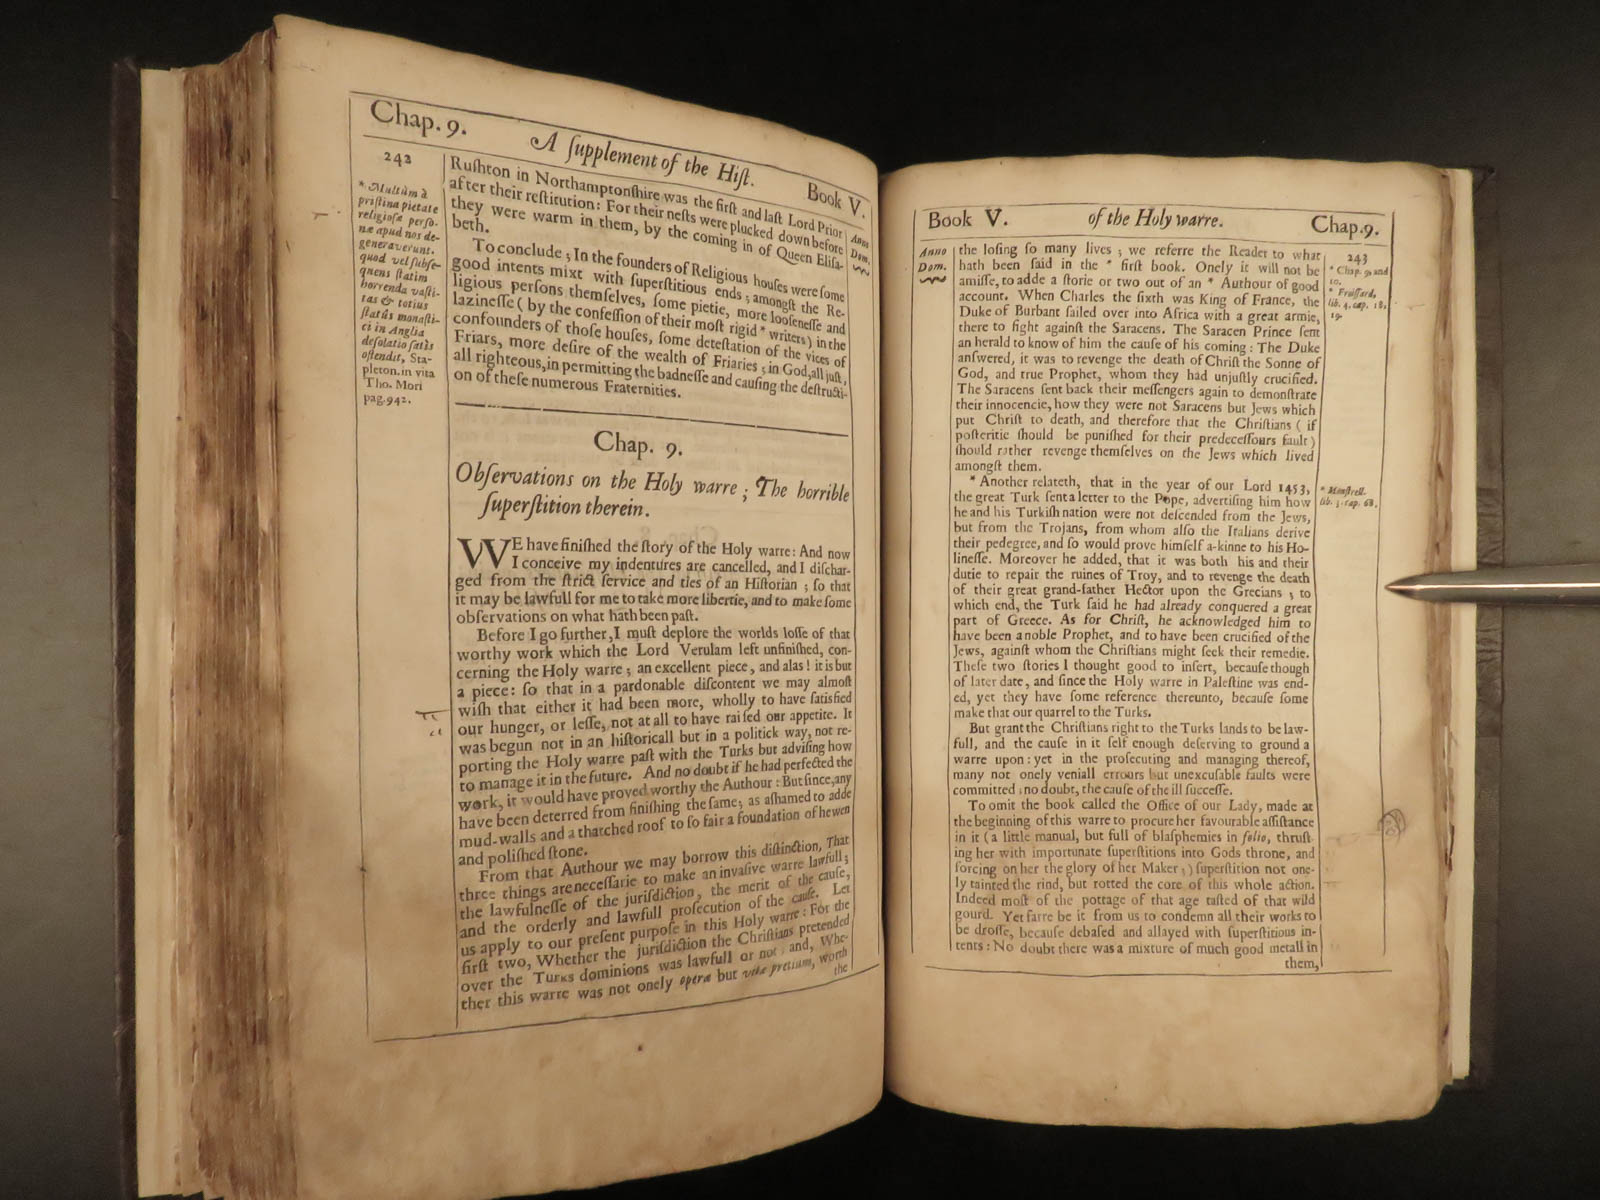 Chap. 9.
A ſupplement of the Hiſt.
Book V.
242
Anno
Dom.
* Multùm à
priſtina pietate
religioſæ perſo-
næ apud nos de-
generaverunt.
quod vel ſubſe-
quens ſtatim
horrenda vaſti-
tas & totius
ſtatûs monaſti-
ci in Anglia
deſolatio ſatis
oſtendit, Sta-
pleton. in vita
Tho. Mori
pag. 942.
Ruſhton in Northamptonſhire was the firſt and laſt Lord Prior
after their reſtitution: For their neſts were plucked down before
they were warm in them, by the coming in of Queen Eliſa-
beth.
To conclude; In the founders of Religious houſes were ſome
good intents mixt with ſuperſtitious ends; amongſt the Re-
ligious perſons themſelves, ſome pietie, more looſeneſſe and
lazineſſe (by the confeſſion of their moſt rigid * writers) in the
confounders of thoſe houſes, ſome deteſtation of the vices of
Friars, more deſire of the wealth of Friaries; in God, all juſt,
all righteous, in permitting the badneſſe and cauſing the deſtructi-
on of theſe numerous Fraternities.
Chap. 9.
Obſervations on the Holy warre; The horrible
ſuperſtition therein.
WE have finiſhed the ſtory of the Holy warre: And now
I conceive my indentures are cancelled, and I diſchar-
ged from the ſtrict ſervice and ties of an Hiſtorian; ſo that
it may be lawfull for me to take more libertie, and to make ſome
obſervations on what hath been paſt.
Before I go further, I muſt deplore the worlds loſſe of that
worthy work which the Lord Verulam left unfiniſhed, con-
cerning the Holy warre; an excellent piece, and alas! it is but
a piece: ſo that in a pardonable diſcontent we may almoſt
wiſh that either it had been more, wholly to have ſatisfied
our hunger, or leſſe, not at all to have raiſed our appetite. It
was begun not in an hiſtoricall but in a politick way, not re-
porting the Holy warre paſt with the Turks but adviſing how
to manage it in the future. And no doubt if he had perfected the
work, it would have proved worthy the Authour: But ſince, any
have been deterred from finiſhing the ſame; as aſhamed to adde
mud-walls and a thatched roof to ſo fair a foundation of hewen
and poliſhed ſtone.
From that Authour we may borrow this diſtinction, That
three things are neceſſarie to make an invaſive warre lawfull;
the lawfulneſſe of the juriſdiction, the merit of the cauſe,
and the orderly and lawfull proſecution of the cauſe. Let
us apply to our preſent purpoſe in this Holy warre: For the
firſt two, Whether the juriſdiction the Chriſtians pretended
over the Turks dominions was lawfull or not; and, Whe-
ther this warre was not onely operæ but vitæ pretium, worth
the
Book V.
of the Holy warre.
Chap. 9.
Anno
Dom.
243
* Chap. 9, and
10.
* Froiſſard,
lib. 4. cap. 18,
19.
* Monſtrell.
lib. 3. cap. 68.
the loſing ſo many lives; we referre the Reader to what
hath been ſaid in the * firſt book. Onely it will not be
amiſſe, to adde a ſtorie or two out of an * Authour of good
account. When Charles the ſixth was King of France, the
Duke of Burbant ſailed over into Africa with a great armie,
there to fight againſt the Saracens. The Saracen Prince ſent
an herald to know of him the cauſe of his coming: The Duke
anſwered, it was to revenge the death of Chriſt the Sonne of
God, and true Prophet, whom they had unjuſtly crucified.
The Saracens ſent back their meſſengers again to demonſtrate
their innocencie, how they were not Saracens but Jews which
put Chriſt to death, and therefore that the Chriſtians (if
poſteritie ſhould be puniſhed for their predeceſſours fault)
ſhould rather revenge themſelves on the Jews which lived
amongſt them.
* Another relateth, that in the year of our Lord 1453,
the great Turk ſent a letter to the Pope, advertiſing him how
he and his Turkiſh nation were not deſcended from the Jews,
but from the Trojans, from whom alſo the Italians derive
their pedegree, and ſo would prove himſelf a-kinne to his Ho-
lineſſe. Moreover he added, that it was both his and their
dutie to repair the ruines of Troy, and to revenge the death
of their great grand-father Hector upon the Grecians; to
which end, the Turk ſaid he had already conquered a great
part of Greece. As for Chriſt, he acknowledged him to
have been a noble Prophet, and to have been crucified of the
Jews, againſt whom the Chriſtians might ſeek their remedie.
Theſe two ſtories I thought good to inſert, becauſe though
of later date, and ſince the Holy warre in Paleſtine was end-
ed, yet they have ſome reference thereunto, becauſe ſome
make that our quarrel to the Turks.
But grant the Chriſtians right to the Turks lands to be law-
full, and the cauſe in it ſelf enough deſerving to ground a
warre upon: yet in the proſecuting and managing thereof,
many not onely veniall errours but unexcuſable faults were
committed; no doubt, the cauſe of the ill ſucceſſe.
To omit the book called the Office of our Lady, made at
the beginning of this warre to procure her favourable aſſiſtance
in it (a little manual, but full of blaſphemies in folio, thruſt-
ing her with importunate ſuperſtitions into Gods throne, and
forcing on her the glory of her Maker;) ſuperſtition not one-
ly tainted the rind, but rotted the core of this whole action.
Indeed moſt of the pottage of that age taſted of that wild
gourd. Yet farre be it from us to condemn all their works to
be droſſe, becauſe debaſed and allayed with ſuperſtitious in-
tents: No doubt there was a mixture of much good metall in
them,